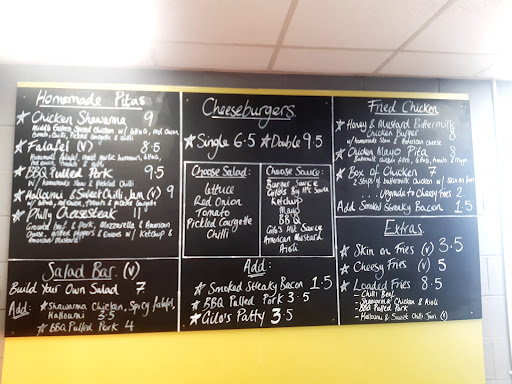 Homemade Pitas
Chicken Shawarma 9
Middle Eastern Spiced Chicken w/ lettuce, red onion,
tomato, chilli, pickled courgette & garlic
Falafel (v) 8.5
Homemade falafel, roast garlic hummus, lettuce,
red onion, tomato &
BBQ Pulled Pork 9.5
w/ homemade slaw & Pickled Chilli
Halloumi & Sweet Chilli Jam (v) 9
w/ lettuce, red onion, tomato & pickled courgette
Philly Cheesesteak 11
Ground beef & Pork, Mozzarella & American
Cheese, grilled peppers & Onions w/ Ketchup &
American Mustard
Salad Bar (v)
Build Your Own Salad 7
Add: Shawarma Chicken, Spicy falafel,
Halloumi 3.5
BBQ Pulled Pork 4
Cheeseburgers
Single 6.5 Double 9.5
Choose Salad:
lettuce
Red Onion
Tomato
Pickled Courgette
Chilli
Choose Sauce:
Burger Sauce
Gilo's Big Hit Sauce
Ketchup
Mayo
BBQ
Gilo's Hot Sauce
American Mustard
Aioli
Add:
Smoked Streaky Bacon 1.5
BBQ Pulled Pork 3.5
Gilo's Patty 3.5
Fried Chicken
Honey & Mustard Buttermilk
Chicken Burger 8
w/ homemade slaw & American cheese
Chicken Mayo Pita 8
Buttermilk chicken, lettuce, tomato & mayo
Box of Chicken 7
3 strips of buttermilk chicken w/ skin on fries
Upgrade to Cheesy Fries 2
Add Smoked Streaky Bacon 1.5
Extras
Skin on Fries (v) 3.5
Cheesy Fries (v) 5
Loaded Fries 8.5
- Chilli Beef
- Shawarma Chicken & Aioli
- BBQ Pulled Pork
- Halloumi & Sweet Chilli Jam (v)